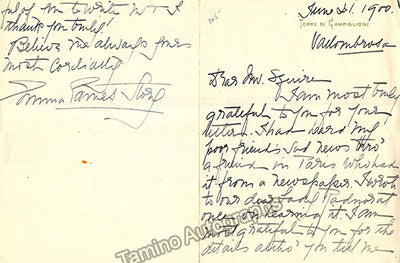 June 21. 1900.
TORRE DI CAMPIGLIONI
Vallombrosa
Dear Mr. Squire
I am most truly
grateful to you for your
letter. I had heard my
poor friend's sad news thro'
a friend in Paris who had
it from a newspaper. I wrote
to our dear Lady Radnor at
once on hearing it. I am
most grateful to you for the
details altho' you tell me
of you to write & I
thank you truly.
Believe me always yours
most cordially
Emma Eames Story
Tamino Autographs